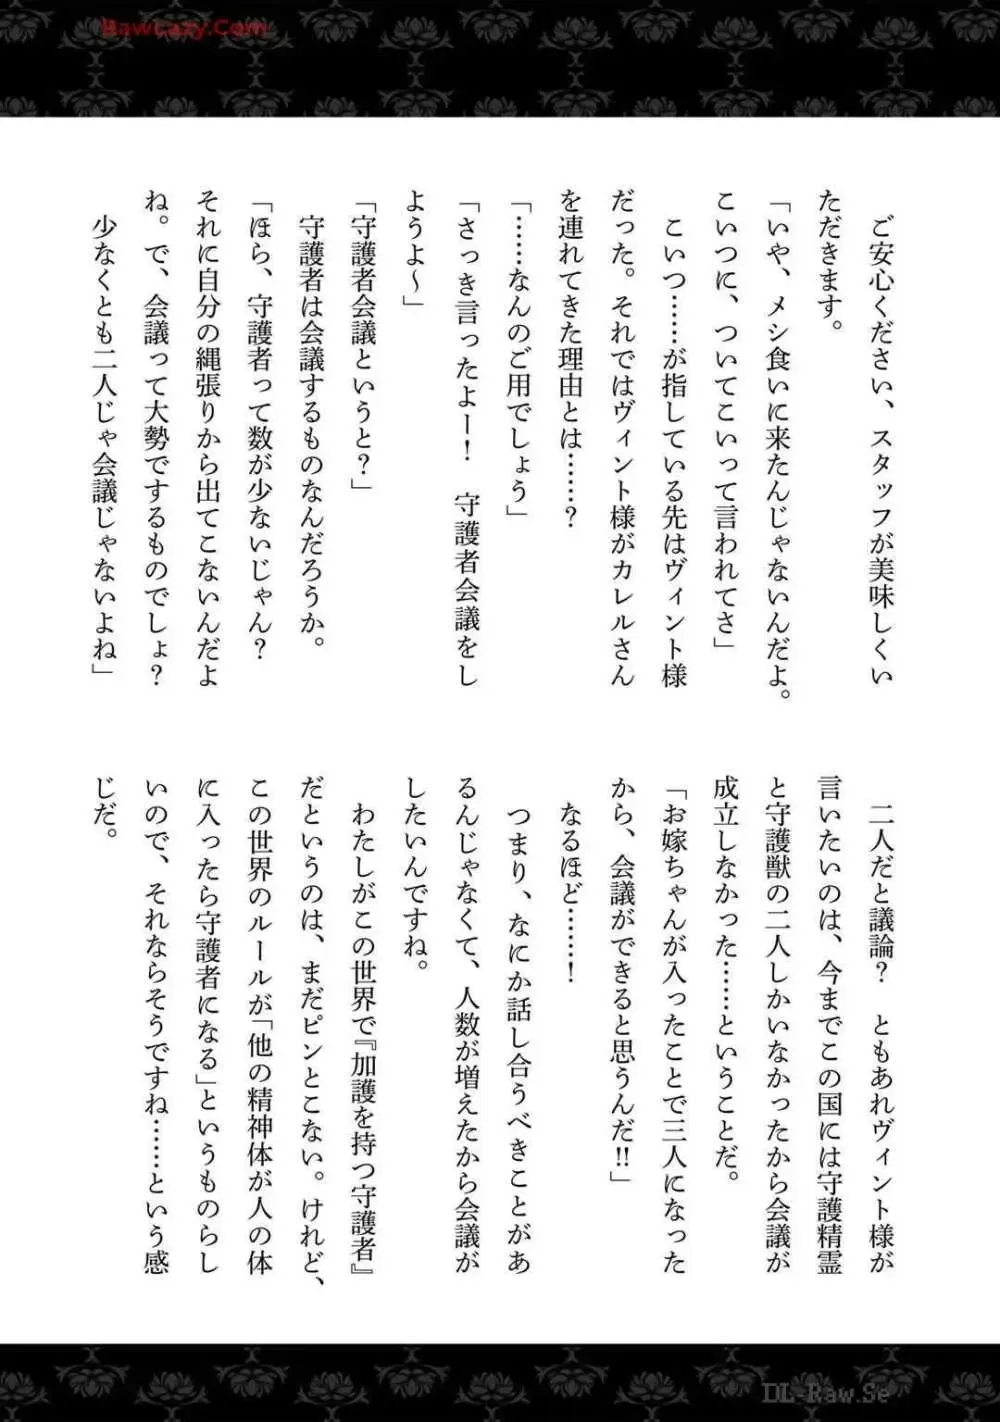 Rawcazy.Com
ご安心ください、スタッフが美味しくい
ただきます。
「いや、メシ食いに来たんじゃないんだよ。
こいつに、ついてこいって言われてさ」
こいつ……が指している先はヴィント様
だった。それではヴィント様がカレルさん
を連れてきた理由とは……？
「……なんのご用でしょう」
「さっき言ったよー！　守護者会議をし
ようよ～」
「守護者会議というと？」
守護者は会議するものなんだろうか。
「ほら、守護者って数が少ないじゃん？
それに自分の縄張りから出てこないんだよ
ね。で、会議って大勢でするものでしょ？
少なくとも二人じゃ会議じゃないよね」
二人だと議論？　ともあれヴィント様が
言いたいのは、今までこの国には守護精霊
と守護獣の二人しかいなかったから会議が
成立しなかった……ということだ。
「お嫁ちゃんが入ったことで三人になった
から、会議ができると思うんだ!!」
なるほど……！
つまり、なにか話し合うべきことがあ
るんじゃなくて、人数が増えたから会議が
したいんですね。
わたしがこの世界で『加護を持つ守護者』
だというのは、まだピンとこない。けれど、
この世界のルールが「他の精神体が人の体
に入ったら守護者になる」というものらし
いので、それならそうですね……という感
じだ。
DL-Raw.Se